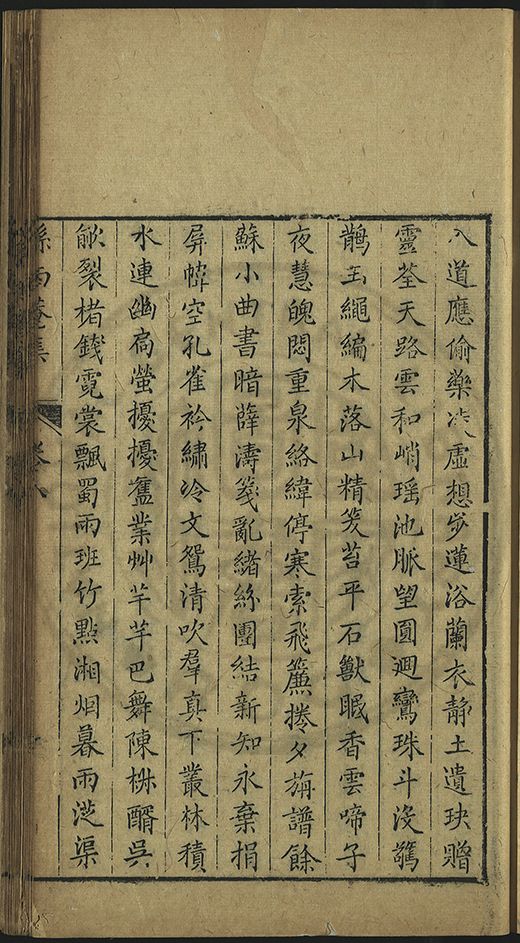 入道應偷藥凌虛想步蓮浴蘭衣靜土遺玦贈
靈荃天路雲和峭瑶池脈望圓迴鸞珠斗沒鵲
鵲玉繩編木落山精笑苔平石獸眠香雲啼子
夜慧魄悶重泉絡緯停寒索飛簾捲夕旃譜餘
蘇小曲書暗薛濤箋亂緒絲團結新知永棄捐
屏幃空孔雀衿繡冷文鴛清吹羣真下叢林積
水連幽扄螢擾擾舊業艸芊芊巴舞陳椒醑吳
歈裂楮錢霓裳飄蜀雨班竹點湘烟暮雨泛渠
雨菴集